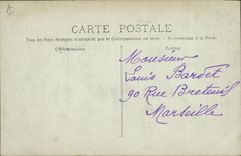 CARTE POSTALE
Tous les Pays étrangers n'acceptent pas la Correspondance au verso. - Se renseigner à la Poste.
Correspondance
Adresse
Monsieur
Louis Bardet
90 Rue Breteuil
Marseille